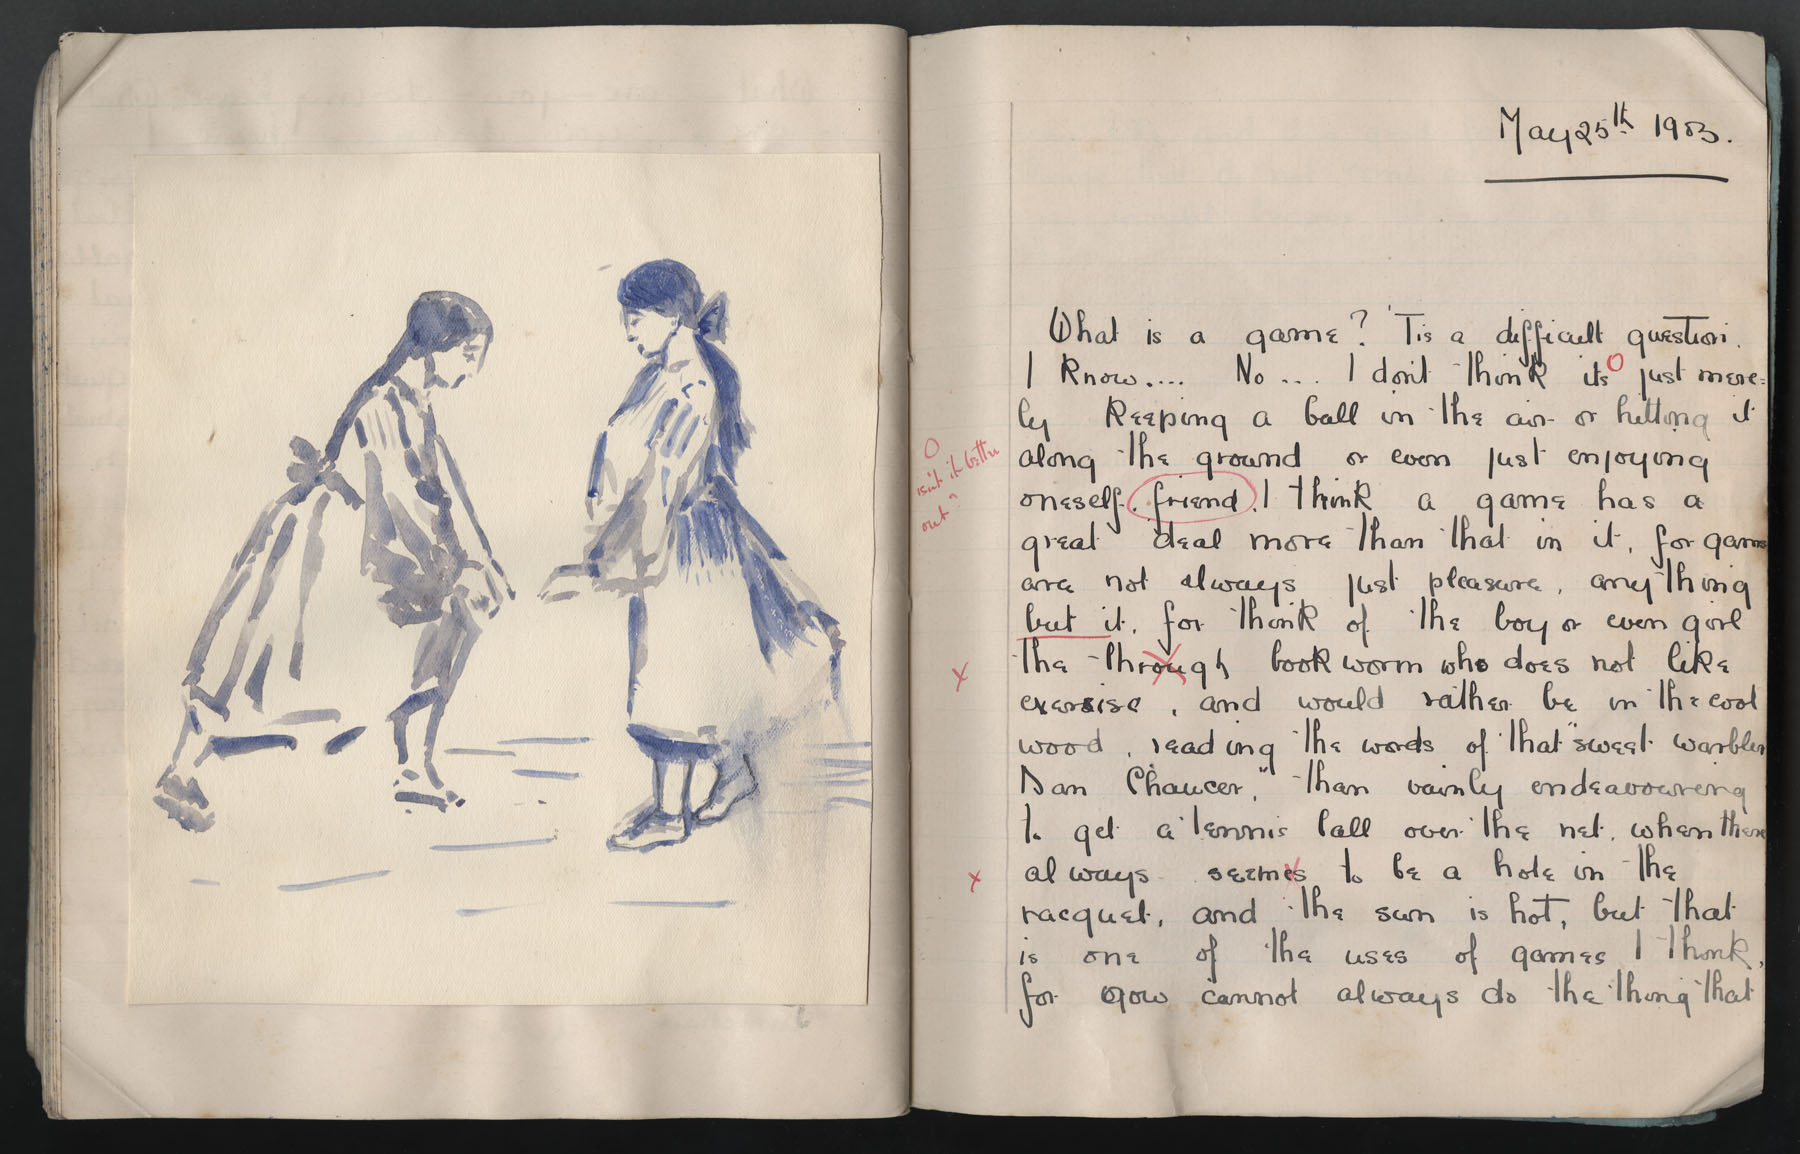 May 25th 1903.
What is a game? 'Tis a difficult question.
I know.... No.... I don't think its just mere=
ly keeping a ball in the air or hitting it
along the ground or even just enjoying
oneself. friend. I think a game has a
great deal more than that in it, for games
are not always just pleasure, anything
but it, for think of the boy or even girl
the through bookworm who does not like
exersise, and would rather be in the cool
wood, reading the words of that "sweet warbler
Dan Chaucer," than vainly endeavouring
to get a tennis ball over the net, when there
always seemes to be a hole in the
racquet, and the sun is hot, but that
is one of the uses of games I think,
for you cannot always do the thing that
O
isn't it better
out?
x
x